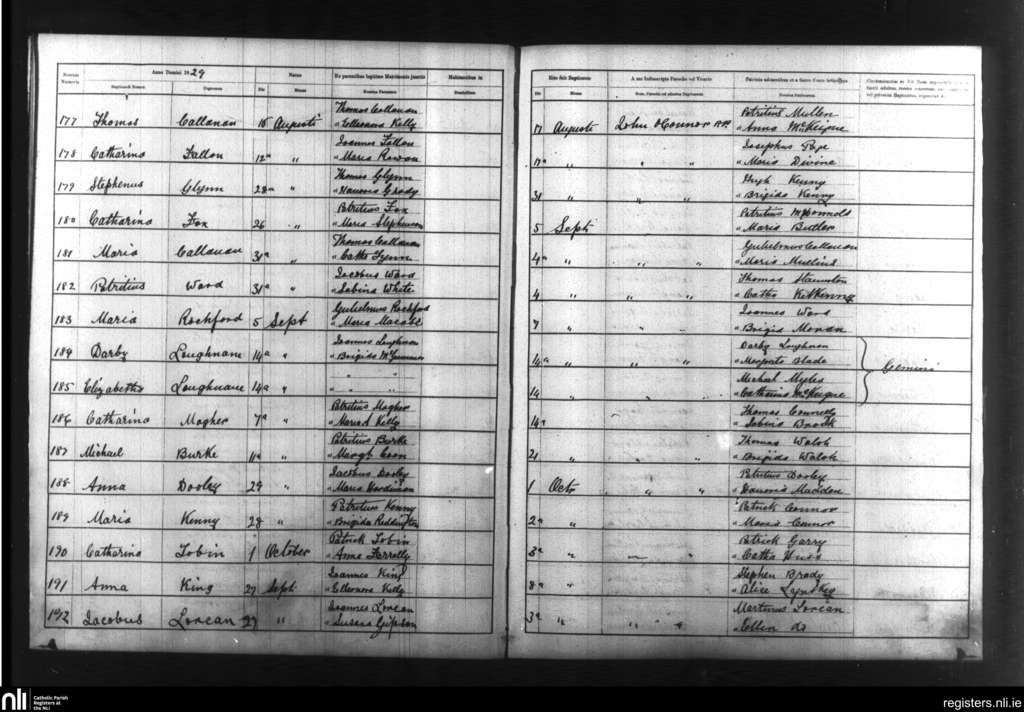 Anno Domini 1829
Numerus
Baptizandi Nomen
Cognomen
Natus
Die
Mense
Ex parentibus legitimo Matrimonio junctis
Nomina Parentum
Habitantibus in
Domicilium
Hinc fuit Baptizatus
Die
Mense
A me Infrascripto Parocho vel Vicario
Patrinis admonitis
Nomina Patrinorum
177 Thomas Callanan 15 Augusti Thomas Callanan
" Elleonora Kelly
17 Augusti John O'Connor Patritius Mullen
" Anna McKeigue
178 Catharina Fallon 12 " Joannes Fallon
" Maria Rowan
17 " " " Josephus Pope
" Maria Divine
179 Stephenus Glynn 28 " Thomas Glynn
" Honora Grady
31 " " " Hugh Kenny
" Brigida Kenny
180 Catharina Fox 26 " Patritius Fox
" Maria Stephenson
5 Sept Patritius McDonnold
" Maria Butler
181 Maria Callanan 31 " Thomas Callanan
" Catha Flynn
4 " " " Gulielmus Callanan
" Maria Mullins
182 Patritius Ward 31 " Jacobus Ward
" Sabina White
4 " " " Thomas Staunton
" Catha Kilkenny
183 Maria Rochford 5 Sept Gulielmus Rochford
" Maria
7 " " " Joannes Ward
" Brigid Moran
184 Darby Loughnane 14 " Joannes Loughnan
" Brigida
14 " " " Darby Loughnan
" Margarita Blade
Gemini
185 Elizabetha Loughnane 14 " " " "
14 " " " Michael Myles
" Catharina McKeigue
186 Catharina Magher 7 " Patritius Magher
" Maria Kelly
14 " Thomas Connelly
" Sabina Brook
187 Michael Burke 11 " Patritius Burke
" Margt Coen
21 " " " Thomas Walsh
" Brigida Walsh
188 Anna Dooley 29 " Jacobus Dooley
" Maria Hardiman
1 Octr " " Patritius Dooley
" Honoria Madden
189 Maria Kenny 28 " Patritius Kenny
" Brigida Reddington
2 " Patrick Connor
" Maria Connor
190 Catharina Tobin 1 October Patrick Tobin
" Anne Farrelly
3 " " " Patrick Garry
" Catha
191 Anna King 27 Sept Joannes King
" Elleonora Kelly
8 " Stephen Brady
" Alice
192 Jacobus Lorcan 27 " Joannes Lorcan
" Susana Gipson
3 " " " Martinus Lorcan
" Ellen do
nli
Catholic Parish
Registers at
the NLI
registers.nli.ie